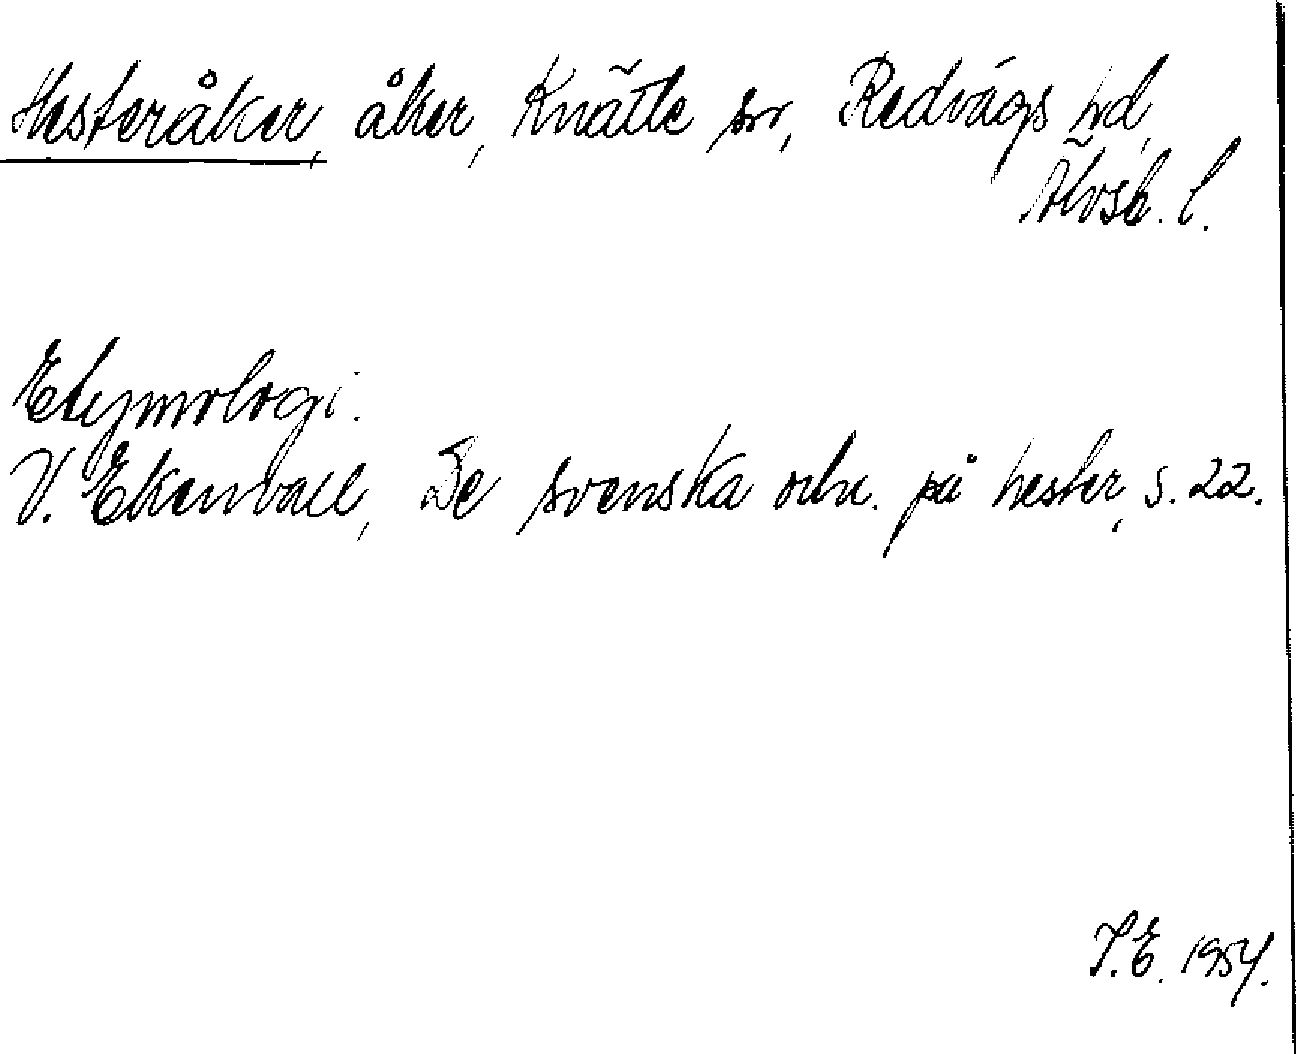 Hesteråker, åker, Knätte sn, Redvägs hd,
Älvsb. l.
Etymologi.
V. Ekenvall, De svenska ortn. på hester, s. 22.
I.E. 1954.